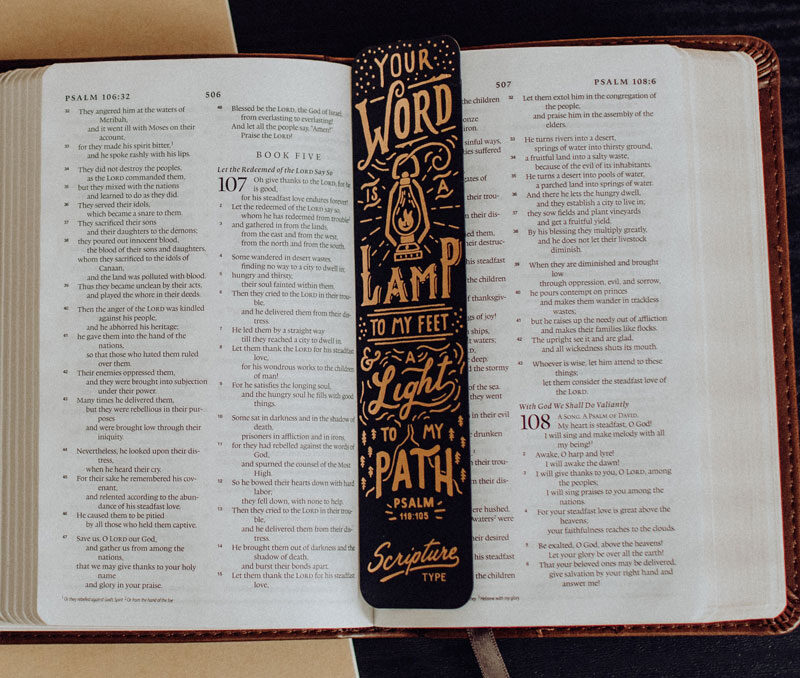 PSALM 106:32
506
32 They angered him at the waters of
Meribah,
and it went ill with Moses on their
account,
33 for they made his spirit bitter,¹
and he spoke rashly with his lips.
34 They did not destroy the peoples,
as the LORD commanded them,
35 but they mixed with the nations
and learned to do as they did.
36 They served their idols,
which became a snare to them.
37 They sacrificed their sons
and their daughters to the demons;
38 they poured out innocent blood,
the blood of their sons and daughters,
whom they sacrificed to the idols of
Canaan,
and the land was polluted with blood.
39 Thus they became unclean by their acts,
and played the whore in their deeds.
40 Then the anger of the LORD was kindled
against his people,
and he abhorred his heritage;
41 he gave them into the hand of the
nations,
so that those who hated them ruled
over them.
42 Their enemies oppressed them,
and they were brought into subjection
under their power.
43 Many times he delivered them,
but they were rebellious in their pur-
poses
and were brought low through their
iniquity.
44 Nevertheless, he looked upon their dis-
tress,
when he heard their cry.
45 For their sake he remembered his cov-
enant,
and relented according to the abun-
dance of his steadfast love.
46 He caused them to be pitied
by all those who held them captive.
47 Save us, O LORD our God,
and gather us from among the
nations,
that we may give thanks to your holy
name
and glory in your praise.
¹ Or they rebelled against God's Spirit ² Or from the hand of the foe
48 Blessed be the LORD, the God of Israel,
from everlasting to everlasting!
And let all the people say, "Amen!"
Praise the LORD!
BOOK FIVE
Let the Redeemed of the LORD Say So
107 Oh give thanks to the LORD, for he
is good,
for his steadfast love endures forever!
2 Let the redeemed of the LORD say so,
whom he has redeemed from trouble²
3 and gathered in from the lands,
from the east and from the west,
from the north and from the south.
4 Some wandered in desert wastes,
finding no way to a city to dwell in;
5 hungry and thirsty,
their soul fainted within them.
6 Then they cried to the LORD in their trou-
ble,
and he delivered them from their dis-
tress.
7 He led them by a straight way
till they reached a city to dwell in.
8 Let them thank the LORD for his steadfast
love,
for his wondrous works to the children
of man!
9 For he satisfies the longing soul,
and the hungry soul he fills with good
things.
10 Some sat in darkness and in the shadow of
death,
prisoners in affliction and in irons,
11 for they had rebelled against the words of
God,
and spurned the counsel of the Most
High.
12 So he bowed their hearts down with hard
labor;
they fell down, with none to help.
13 Then they cried to the LORD in their trou-
ble,
and he delivered them from their dis-
tress.
14 He brought them out of darkness and the
shadow of death,
and burst their bonds apart.
15 Let them thank the LORD for his steadfast
love,
YOUR
WORD
IS A
LAMP
TO MY FEET
& A
Light
TO MY
PATH
PSALM
118:105
Scripture
TYPE
507
PSALM 108:6
the children
iron.
sinful ways,
ies suffered
gates of
their trou-
their dis-
their destruc-
his steadfast
the children
of thanksgiv-
songs of joy!
ships,
waters;
deep.
the stormy
of the sea.
they went
in their evil
drunken
their trou-
their dis-
were hushed.
waters² were
their desired
his steadfast
the children
32 Let them extol him in the congregation of
the people,
and praise him in the assembly of the
elders.
33 He turns rivers into a desert,
springs of water into thirsty ground,
34 a fruitful land into a salty waste,
because of the evil of its inhabitants.
35 He turns a desert into pools of water,
a parched land into springs of water.
36 And there he lets the hungry dwell,
and they establish a city to live in;
37 they sow fields and plant vineyards
and get a fruitful yield.
38 By his blessing they multiply greatly,
and he does not let their livestock
diminish.
39 When they are diminished and brought
low
through oppression, evil, and sorrow,
40 he pours contempt on princes
and makes them wander in trackless
wastes;
41 but he raises up the needy out of affliction
and makes their families like flocks.
42 The upright see it and are glad,
and all wickedness shuts its mouth.
43 Whoever is wise, let him attend to these
things;
let them consider the steadfast love of
the LORD.
With God We Shall Do Valiantly
108 A SONG. A PSALM OF DAVID.
My heart is steadfast, O God!
I will sing and make melody with all
my being!¹
2 Awake, O harp and lyre!
I will awake the dawn!
3 I will give thanks to you, O LORD, among
the peoples;
I will sing praises to you among the
nations.
4 For your steadfast love is great above the
heavens;
your faithfulness reaches to the clouds.
5 Be exalted, O God, above the heavens!
Let your glory be over all the earth!
6 That your beloved ones may be delivered,
give salvation by your right hand and
answer me!
² Hebrew with my glory